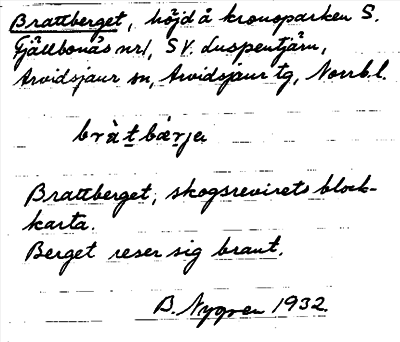 Brattberget, höjd å kronoparken S.
Fjällbonäs nr 1, SV. Luspentjärn,
Arvidsjaur sn, Arvidsjaur tg, Norrb.l.
bràt bæ̀rja
Brattberget, skogsrevirets block-
karta.
Berget reser sig brant.
B. Nygren 1932.